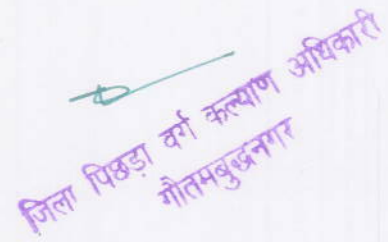 जिला पिछड़ा वर्ग कल्याण अधिकारी
गौतमबुद्धनगर